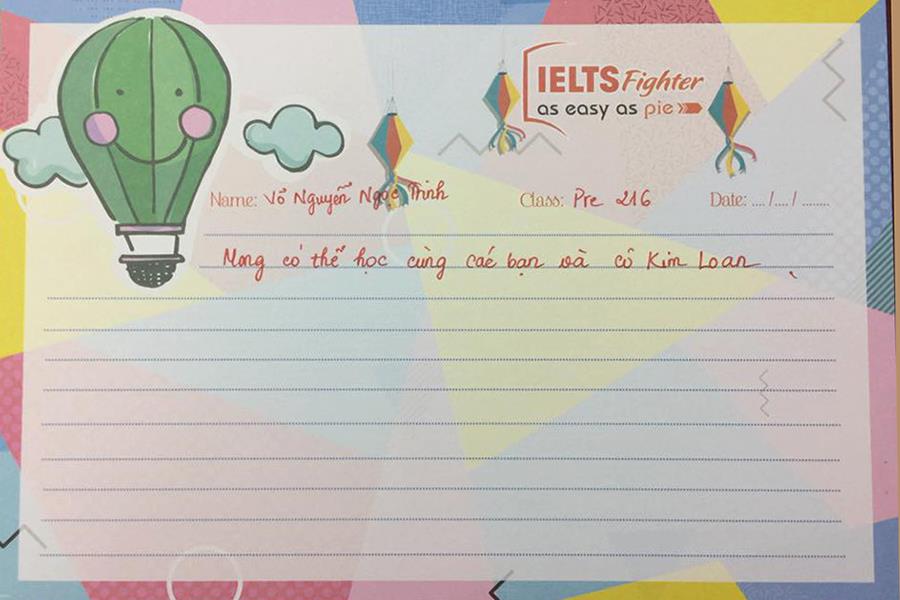 IELTS Fighter
as easy as pie
Name: Võ Nguyễn Ngọc Trinh Class: Pre 216 Date: .... /.... / ........
Mong có thể học cùng các bạn và cô Kim Loan.